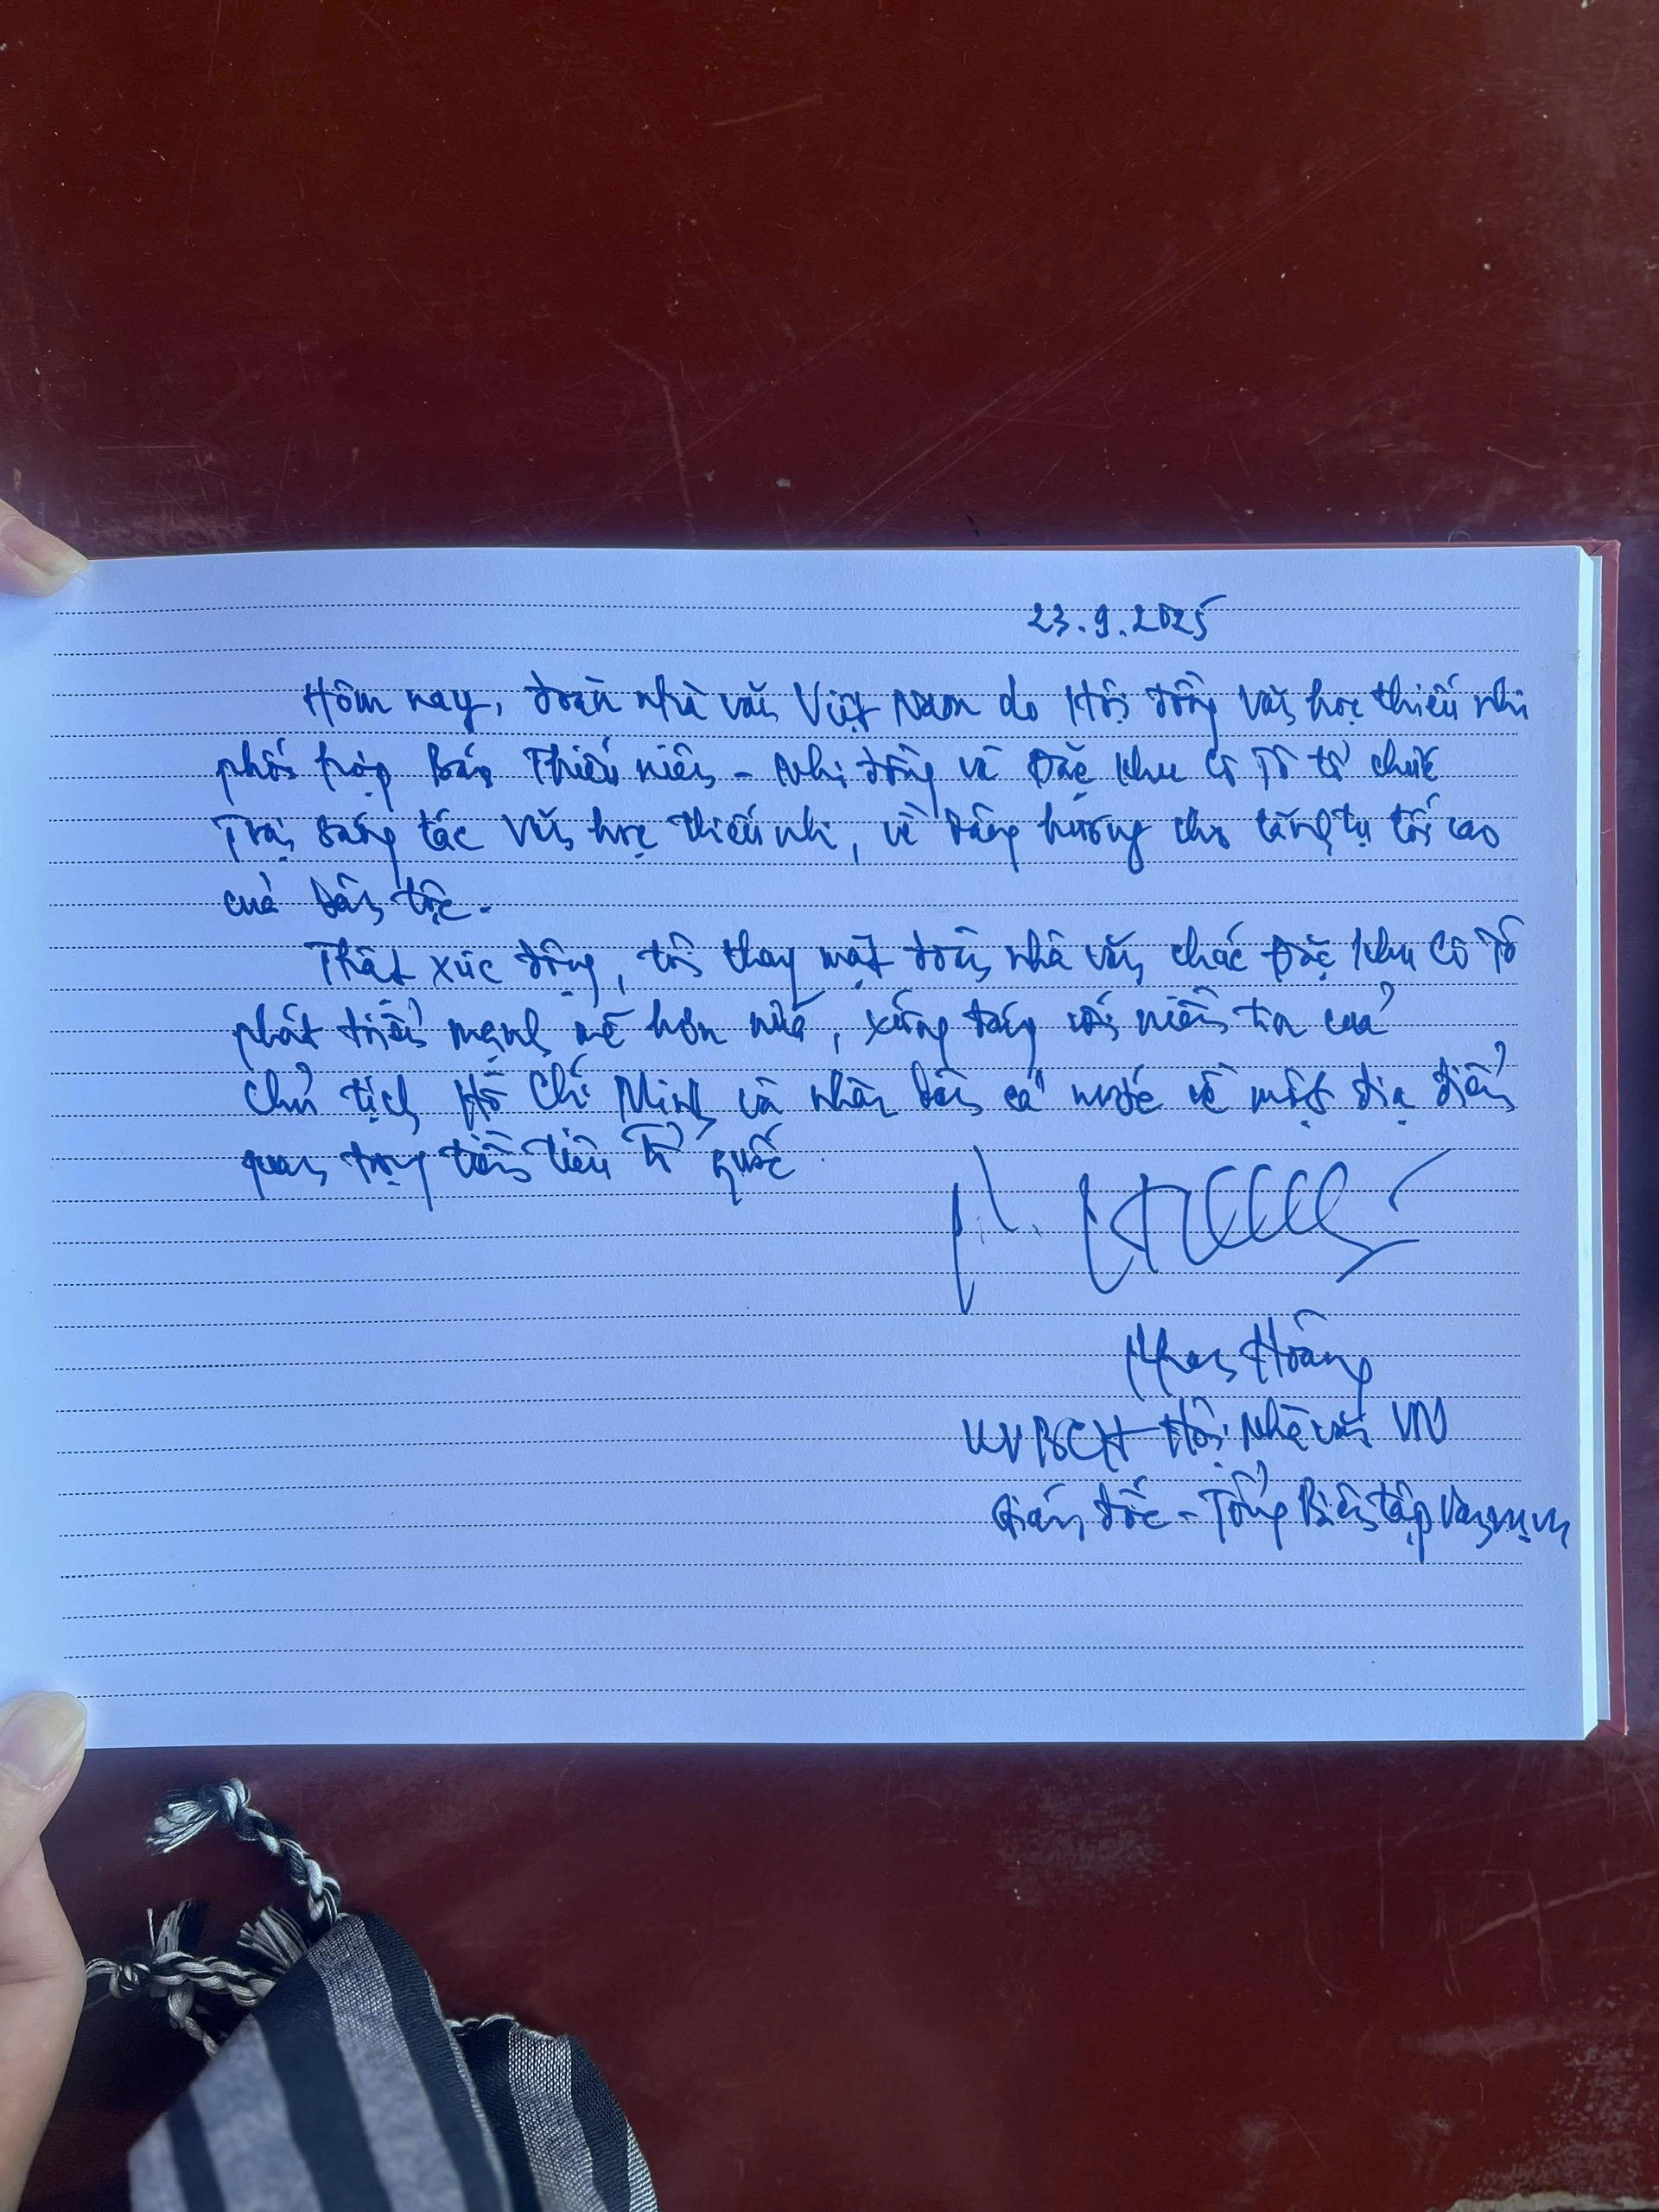 23.9.2025
Hôm nay, đoàn nhà văn Việt Nam do Hội đồng văn học thiếu nhi
phối hợp Báo Thiếu niên - Nhi đồng và Đặc khu Cô Tô tổ chức
Trại sáng tác Văn học thiếu nhi, về dâng hương cho lãnh tụ tối cao
của dân tộc.
Thật xúc động, tôi thay mặt đoàn nhà văn, chúc Đặc khu Cô Tô
phát triển mạnh mẽ hơn nữa, xứng đáng với niềm tin của
Chủ tịch Hồ Chí Minh và nhân dân cả nước về một địa điểm
quan trọng tiền tiêu Tổ quốc.
Hoàng
UVBCH Hội Nhà văn VN
Giám đốc - Tổng Biên tập